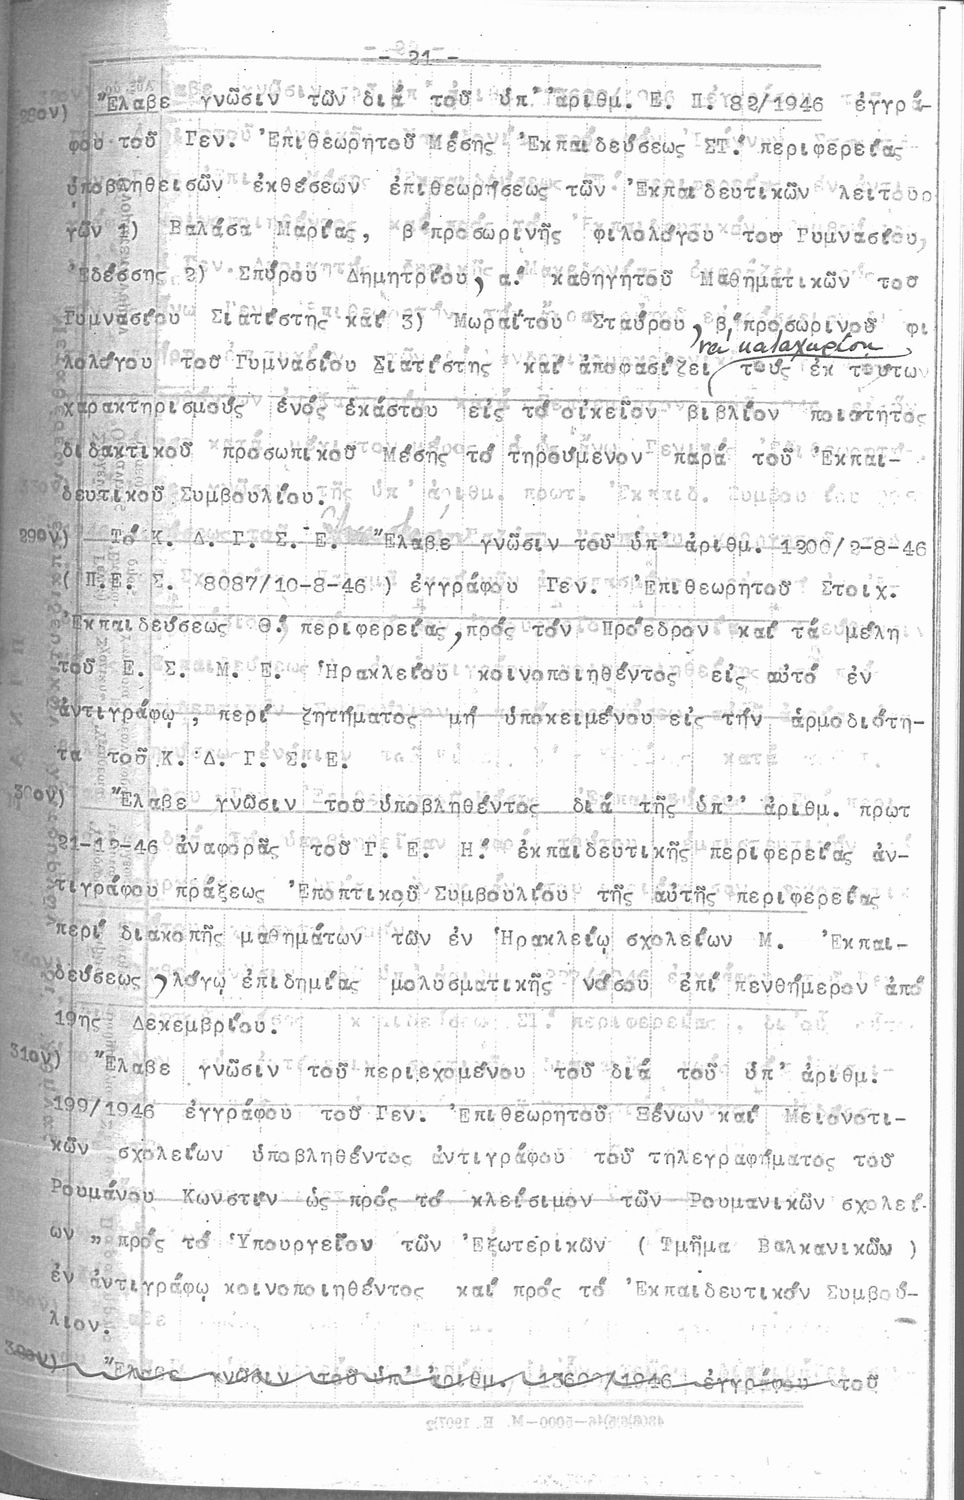 - 21 -
28ον) Ἔλαβε γνῶσιν τῶν διά τοῦ ὑπ' ἀριθμ. Ε. Π. 82/1946 ἐγγρά-
φου τοῦ Γεν. Ἐπιθεωρητοῦ Μέσης Ἐκπαιδεύσεως ΣΤ.' περιφερείας
ὑποβληθεισῶν ἐκθέσεων ἐπιθεωρήσεως τῶν Ἐκπαιδευτικῶν λειτουρ
γῶν 1) Βαλάσα Μαρίας, β΄προσωρινῆς φιλολόγου του Γυμνασίου,
Ἐδέσσης 2) Σπύρου Δημητρίου, α.' καθηγητοῦ Μαθηματικῶν του
Γυμνασίου Σιατίστης καί 3) Μωραΐτου Σταύρου, β΄προσωρινοῦ φι
νά καταχωρίσῃ
λολόγου τοῦ Γυμνασίου Σιατίστης καί ἀποφασίζει τούς ἐκ τούτων
χαρακτηρισμούς ἑνός ἑκάστου εἰς τό οἰκεῖον βιβλίον ποιότητος
διδακτικοῦ προσωπικοῦ Μέσης τό τηρούμενον παρά τοῦ Ἐκπαι-
δευτικοῦ Συμβουλίου.
29ον) Τό Κ. Δ. Γ. Σ. Ε. Ἔλαβε γνῶσιν τοῦ ὑπ' ἀριθμ. 1200/2-8-46
( Π.Ε. Σ. 8087/10-8-46 ) ἐγγράφου Γεν. Ἐπιθεωρητοῦ Στοιχ.
Ἐκπαιδεύσεως Θ.' περιφερείας, πρός τόν Πρόεδρον καί τά μέλη
τοῦ Ε. Σ. Μ. Ε. Ἡρακλείου κοινοποιηθέντος εἰς αὐτό ἐν
ἀντιγράφῳ, περί ζητήματος μή ὑποκειμένου εἰς τήν ἁρμοδιότη-
τα τοῦ Κ. Δ. Γ. Σ. Ε.
30ον) Ἔλαβε γνῶσιν του ὑποβληθέντος διά τῆς ὑπ'' ἀριθμ. πρωτ
21-12-46 ἀναφορᾶς τοῦ Γ. Ε. Η.' ἐκπαιδευτικῆς περιφερείας ἀν-
τιγράφου πράξεως Ἐποπτικοῦ Συμβουλίου τῆς αὐτῆς περιφερείας
περί διακοπῆς μαθημάτων τῶν ἐν Ἡρακλείῳ σχολείων Μ. Ἐκπαι-
δεύσεως, λόγῳ ἐπιδημίας μολυσματικῆς νόσου ἐπί πενθήμερον ἀπό
19ης Δεκεμβρίου.
31ον) Ἔλαβε γνῶσιν τοῦ περιεχομένου τοῦ διά τοῦ ὑπ' ἀριθμ.
199/1946 ἐγγράφου τοῦ Γεν. Ἐπιθεωρητοῦ Ξένων καί Μειονοτι-
κῶν σχολείων ὑποβληθέντος ἀντιγράφου τοῦ τηλεγραφήματος τοῦ
Ρουμάνου Κωνστιν ὡς πρός τό κλείσιμον τῶν Ρουμανικῶν σχολεί-
ων „ πρός τό Ὑπουργεῖον τῶν Ἐξωτερικῶν ( Τμῆμα Βαλκανικῶν )
ἐν ἀντιγράφῳ κοινοποιηθέντος καί πρός τό Ἐκπαιδευτικόν Συμβού-
λιον.
Ἔλαβε γνῶσιν τοῦ ὑπ' ἀριθμ. 1360 /1946 ἐγγράφου τοῦ